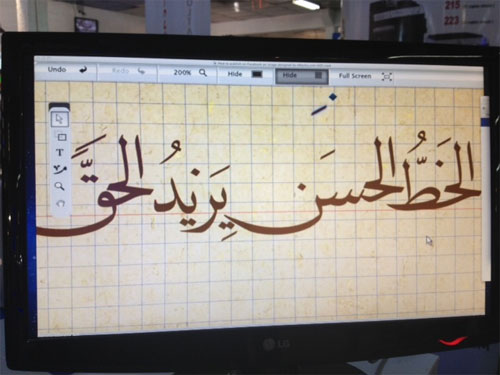 215
223
Undo Redo 200% Hide Hide Full Screen
الخَطُّ الحسَن يَزِيدُ الحقَّ
LG